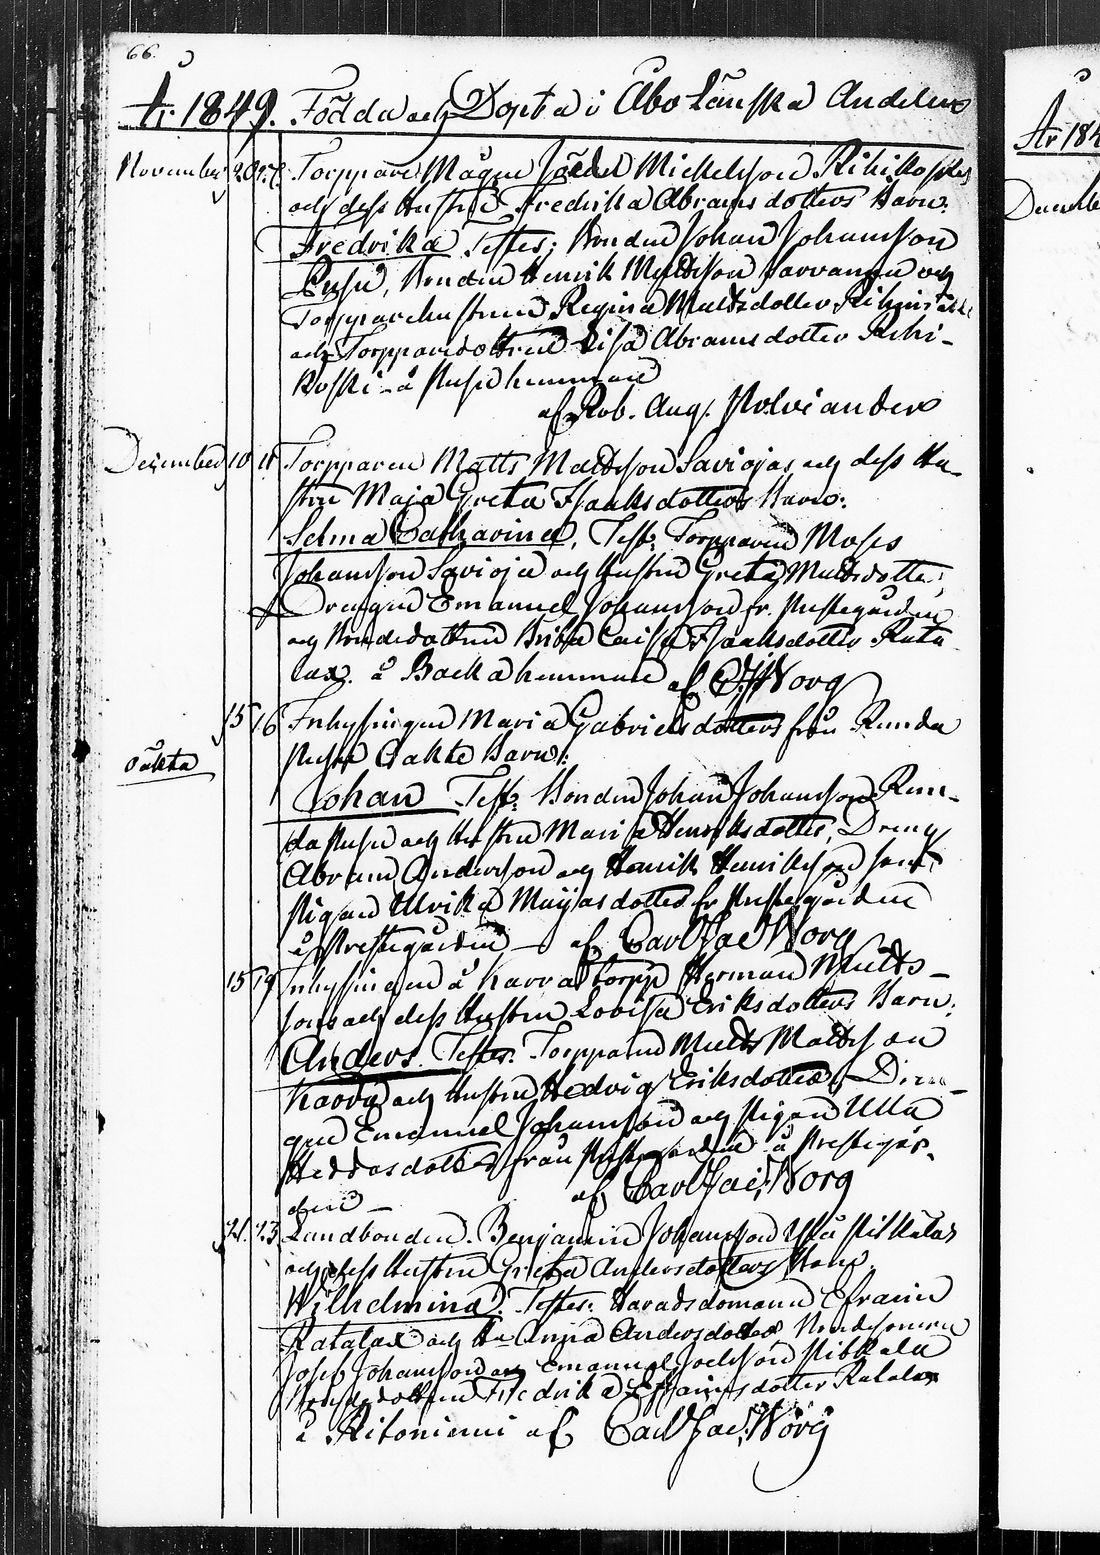 66.
År 1849. Födda och Döpta i Åbo Länska Andelen
November 20. Torppare Mågen Joel Mickelsson Kihikoskis
och dess Hustru Fredrika Abramsdotters Barn:
Fredrika Testes: Bonden Johan Johansson
Pusu, Bonden Henrik Mattsson och
Torpparehustrun Regina Mattsdotter
och Torpparedottren Lisa Abramsdotter Kihi-
koski å Pusu hemman
af Rob. Aug. Polviander
December 10 11 Torpparen Matts Mattsson Saviojas och dess Hu-
stru Maja Greta Isaaksdotters Barn:
Selma Catharina, Test: Torpparen Moses
Johansson Savioja och Hustru Greta Mattsdotter,
Drengen Emanuel Johansson fr. Prestegården
och Bondedottren Brita Caisa Isaaksdotter Rata
lax. å Backa hemman af C. J. Borg
15 16 Inhysingen Maria Gabrielsdotters från Runda
Pusu Oäkta Barn:
oäkta
Johan Test: Bonden Johan Johansson Run-
da Pusu och Hustru Maria Henriksdotter, Dreng
Abram Andersson och Henrik Henriksson samt
Pigan Ulrika Majasdotter fr Prestegården
å Prestegården — af Carl Jac. Borg
15 19 Inhysingen å Karra torpp Herman Matts-
sons och dess Hustru Lovisa Eriksdotters Barn:
Anders. Testes: Torpparen Matts Mattsson
Karra och Hustru Hedvig Eriksdotter, Dren-
gen Emanuel Johansson och Pigan Ulla
Heddasdotter från Prestegården å Prestegår-
den — af Carl Jac. Borg
21. 23. Landbonden Benjamin Johansson Pikkalas
och dess Hustru Greta Andersdotters Barn:
Wilhelmina. Testes: Häradsdomaren Efraim
Ratalax och Hu Anna Andersdotter Bondesonen
Josef Johansson och Emanuel Joelsson Pikkala
Bondedottren Fredrika Efraimsdotter Ratalax
å Ritoniemi af Carl Jac. Borg
År 184
Decembe